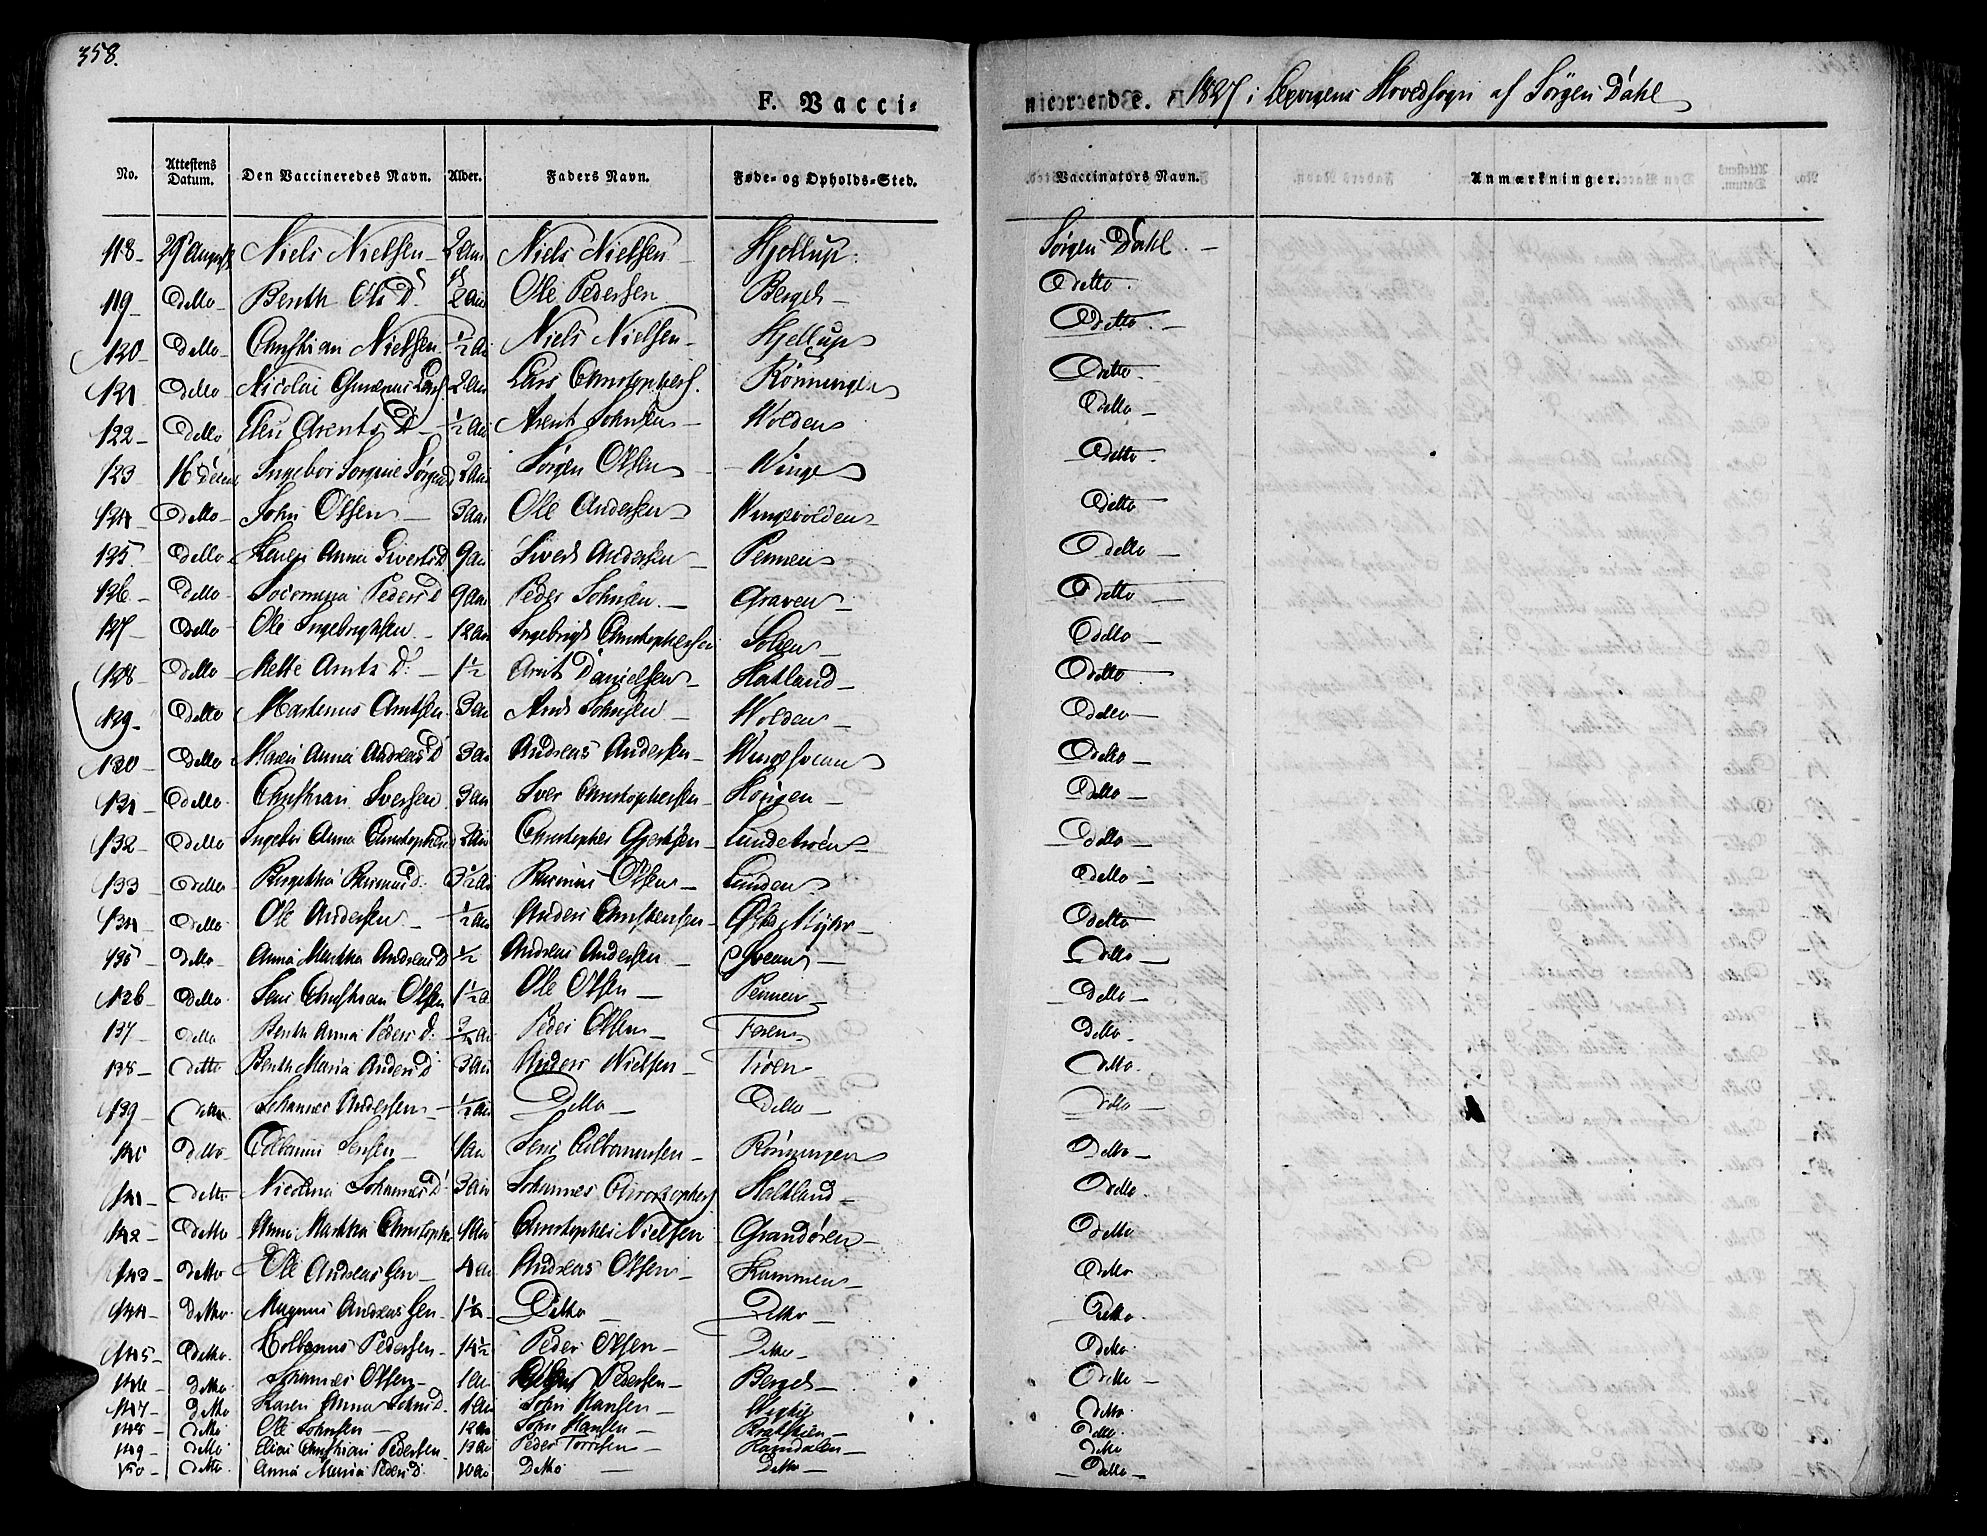 358.
F. Vacci-
nieerede. 1827 i Hovedsogn af Jörgen Dahl
No. Attestens Datum. Den Vaccineredes Navn. Alder. Faders Navn. Føde- og Opholds-Sted. Vaccinators Navn. Anmærkninger.
118- 25 August Niels Nielsen - 2 aar Niels Nielsen - Hjellup. Jørgen Dahl. -
119- Ditto- Benth Ols D. Ole Pedersen Berget - Ditto.
120- Ditto- Christian Nielsen ½ aar Niels Nielsen - Hjellup Ditto. -
121 Ditto- Nicolai 2 aar Lars Christophers. Rönningen Ditto.
122- Ditto Elen Arents D - ½ aar Arent Johnsen - Wolden Ditto -
123 16 Ingebor Jörgine Jörgens D 2 aar Jörgen Olsen - Winge Ditto.
124 - Ditto- John Olsen - 3 aar Ole Andersen - Wingevolden - Ditto
125. Ditto Anna Siverts D 9 aar Sivert Andersen - Pennen Ditto -
126- Ditto- Peders D 9 aar Peder Johnsen. - Graven - Ditto
127- Ditto- Ole Ingebrigtsen - 12 aar Ingebrigt Christophersen Solem - Ditto -
128- Ditto- Mette Arnts D. - 1½ Arnt Danielsen - Hatland - Ditto
129- Ditto Martinus Arntsen 3 aar Arnt Johnsen - Wolden - Ditto -
130 - Ditto Maren Anna Andreas D 3 aar Andreas Andersen - Ditto -
131 - Ditto- Christian Iversen 3 aar Iver Christophersen - Haugen - Ditto -
132- Ditto Ingebor Anna Christophers D 2 aar Christopher Gjertsen - Lundetrøen - Ditto -
133 - Ditto Rasmus D. 3½ aar Rasmus Olsen - Lunden Ditto -
134 - Ditto. Ole Andersen - ½ aar Anders Christensen - Ditto
135 - Ditto- Anna Martha Andreas D ½ Andreas Andersen - - Ditto -
136 - Ditto. Jens Christian Olsen 1½ a Ole Olsen - Pennen - Ditto -
137 - Ditto Benth Anna Peders D. Peder Olsen - Foren Ditto -
138- Ditto Benth Maria Anders D 3 aar Anders Nielsen - Trøen - Ditto.
139 - Ditto. Johannes Andersen - ½ aar Ditto - Ditto - Ditto -
140 Ditto- Colbanus Jensen - 4 aar Jens Colbanussen - Rönningen Ditto -
141 - Ditto Nicolina Johannes D 3 aar Johannes Christophers. Hatland - Ditto.
142- Ditto Anna Martha Christophers 4 aar Christopher Nielsen Grandören - Ditto
143 - Ditto Ole Andreassen - 4 aar Andreas Olsen - Hammen - Ditto
144 - Ditto. Magnus Andreassen - 1½ Ditto - Ditto - Ditto.
145 - Ditto. Kolbanus Pedersen - 14½ Peder Olsen - Ditto - Ditto.
146 - Ditto. Johannes Olsen - 1 aar Pedersen - Berget - Ditto -
147 - Ditto Karen Anna Johns D. 1 aar John Hansen - Ditto
148 - Ditto Ole Johnsen - 12 aar John Hansen - Ditto
149 - Ditto Elias Christian Pedersen 13 aar Peder - Ramdalen - Ditto
150 - Ditto. Anna Maria Peders D. 10 aar Ditto - Ditto - Ditto -